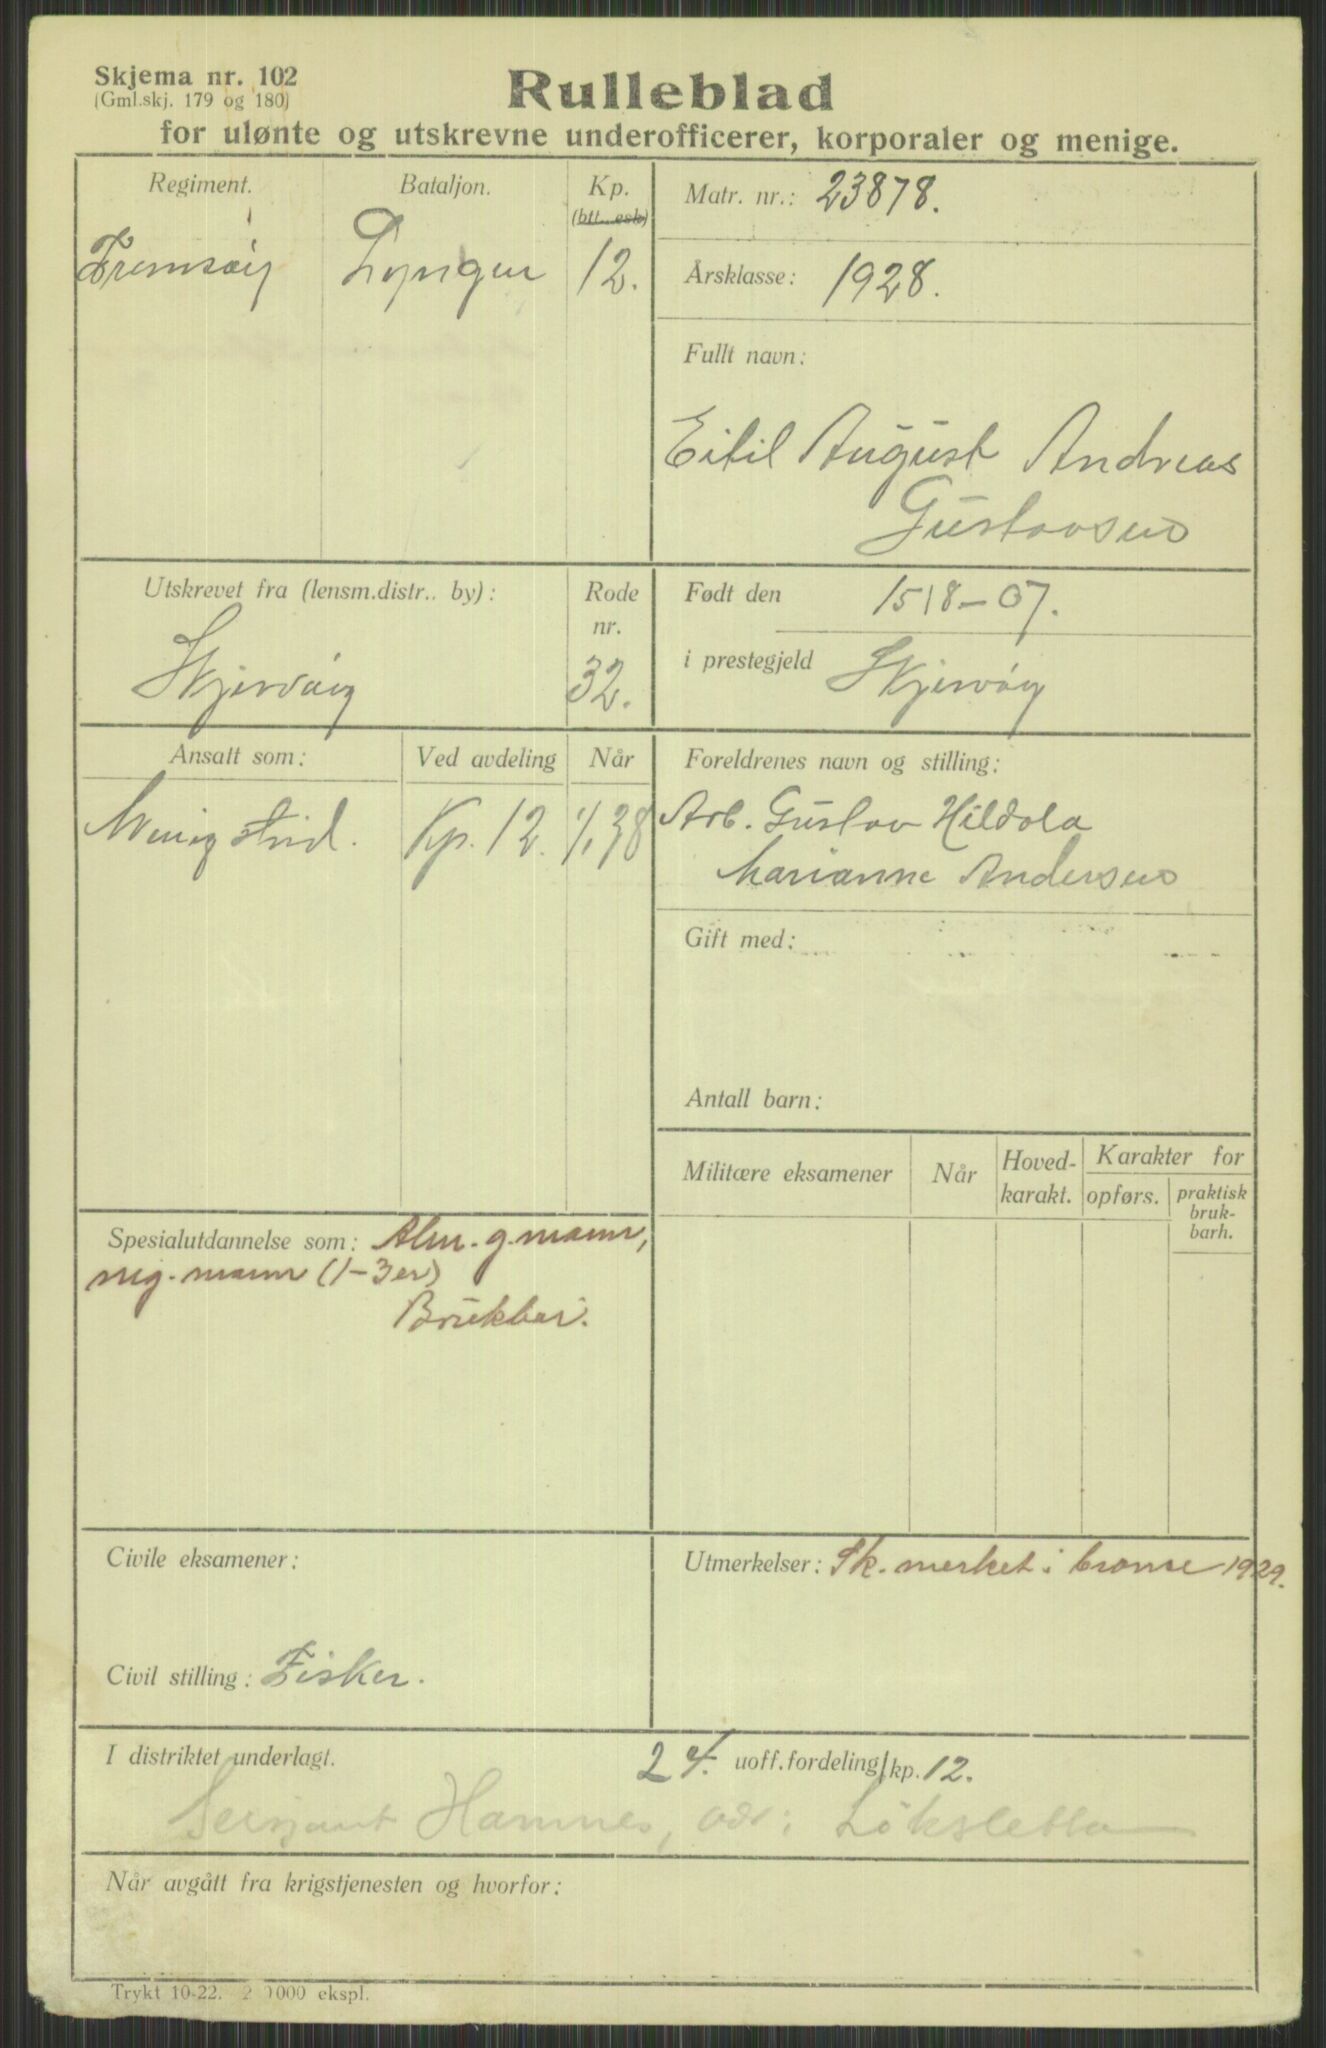 Skjema nr. 102
(Gml.skj. 179 og 180)
Rulleblad
for ulønte og utskrevne underofficerer, korporaler og menige.
Regiment.
Bataljon.
Kp.
(btt. esk)
Tromsøy
Lyngen
12.
Matr. nr.: 23878.
Årsklasse: 1928.
Fullt navn:
Eitil August Andreas
Gustavsen
Utskrevet fra (lensm.distr.. by):
Skjervøy
Rode
nr.
32.
Født den 15/8-07.
i prestegjeld Skjervøy
Ansatt som:
Ved avdeling
Når
Menig strid.
Kp. 12.
1/1 38
Foreldrenes navn og stilling:
Arb. Gustav Hildola
Marianne Andersen
Gift med:
Antall barn:
Militære eksamener
Når
Hoved-
karakt.
Karakter for
opførs.
praktisk
bruk-
barh.
Spesialutdannelse som: Alm. g.mann,
mg. mann (1-3er)
Brukbar.
Civile eksamener:
Civil stilling: Fisker.
Utmerkelser: Sk. merket i bronse 1929.
I distriktet underlagt.
24. uoff.fordeling/kp. 12.
Sersjant Hamnes, adr: Løksletta
Når avgått fra krigstjenesten og hvorfor:
Trykt 10-22. 2 0000 ekspl.